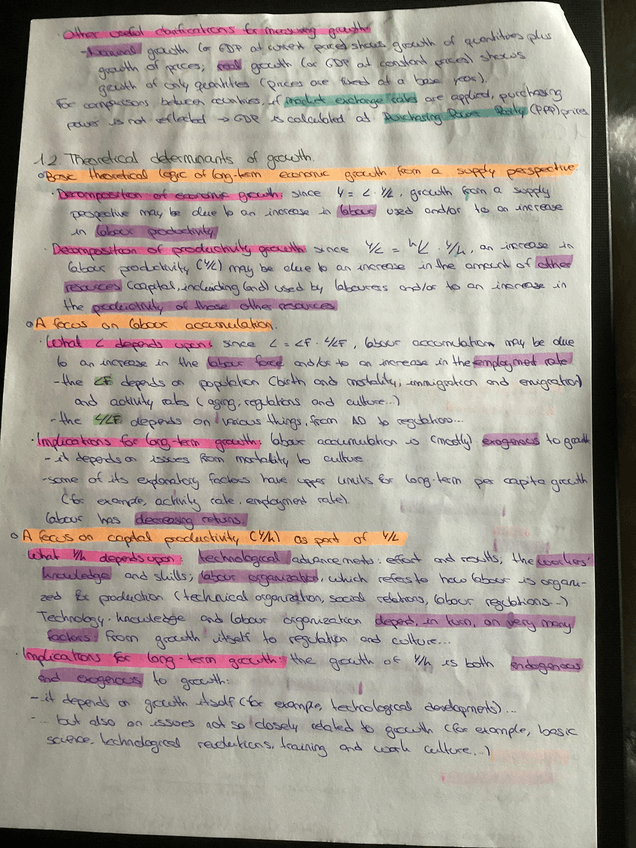 Other useful clarifications for measuring growth
- Nominal growth (or GDP at current prices) shows growth of quantities plus
growth of prices; real growth (or GDP at constant prices) shows
growth of only quantities (prices are fixed at a base year).
For comparisons between countries, if market exchange rates are applied, purchasing
power is not reflected → GDP is calculated at Purchasing Power Parity (PPP) prices
1.2 Theoretical determinants of growth.
o Basic theoretical logic of long-term economic growth from a supply perspective
· Decomposition of economic growth: since Y = L · Y/L, growth from a supply
perspective may be due to an increase in labour used and/or to an increase
in labour productivity
· Decomposition of productivity growth: since Y/L = K/L · Y/K, an increase in
labour productivity (Y/L) may be due to an increase in the amount of other
resources (capital, including land) used by labourers and/or to an increase in
the productivity of those other resources
o A focus on labour accumulation.
· What L depends upon: since L = LF · L/LF, labour accumulation may be due
to an increase in the labour force and/or to an increase in the employment rate
- the LF depends on population (birth and mortality, immigration and emigration)
and activity rates (aging, regulations and culture...)
- the L/LF depends on various things, from AD to regulation...
· Implications for long-term growth: labour accumulation is (mostly) exogenous to growth
- it depends on issues from mortality to culture
- some of its explanatory factors have upper limits for long-term per capita growth
(for example, activity rate, employment rate).
Labour has decreasing returns.
o A focus on capital productivity (Y/K) as part of Y/L
What Y/K depends upon: technological advancements: effort and results, the workers'
knowledge and skills; labour organization, which refers to how labour is organi-
zed for production (technical organization, social relations, labour regulations...)
Technology, knowledge and labour organization depend, in turn, on very many
factors from growth itself to regulation and culture...
· Implications for long-term growth: the growth of Y/K is both endogenous
and exogenous to growth:
- it depends on growth itself (for example, technological developments)...
- ... but also on issues not so closely related to growth (for example, basic
science, technological revolutions, training and work culture...)